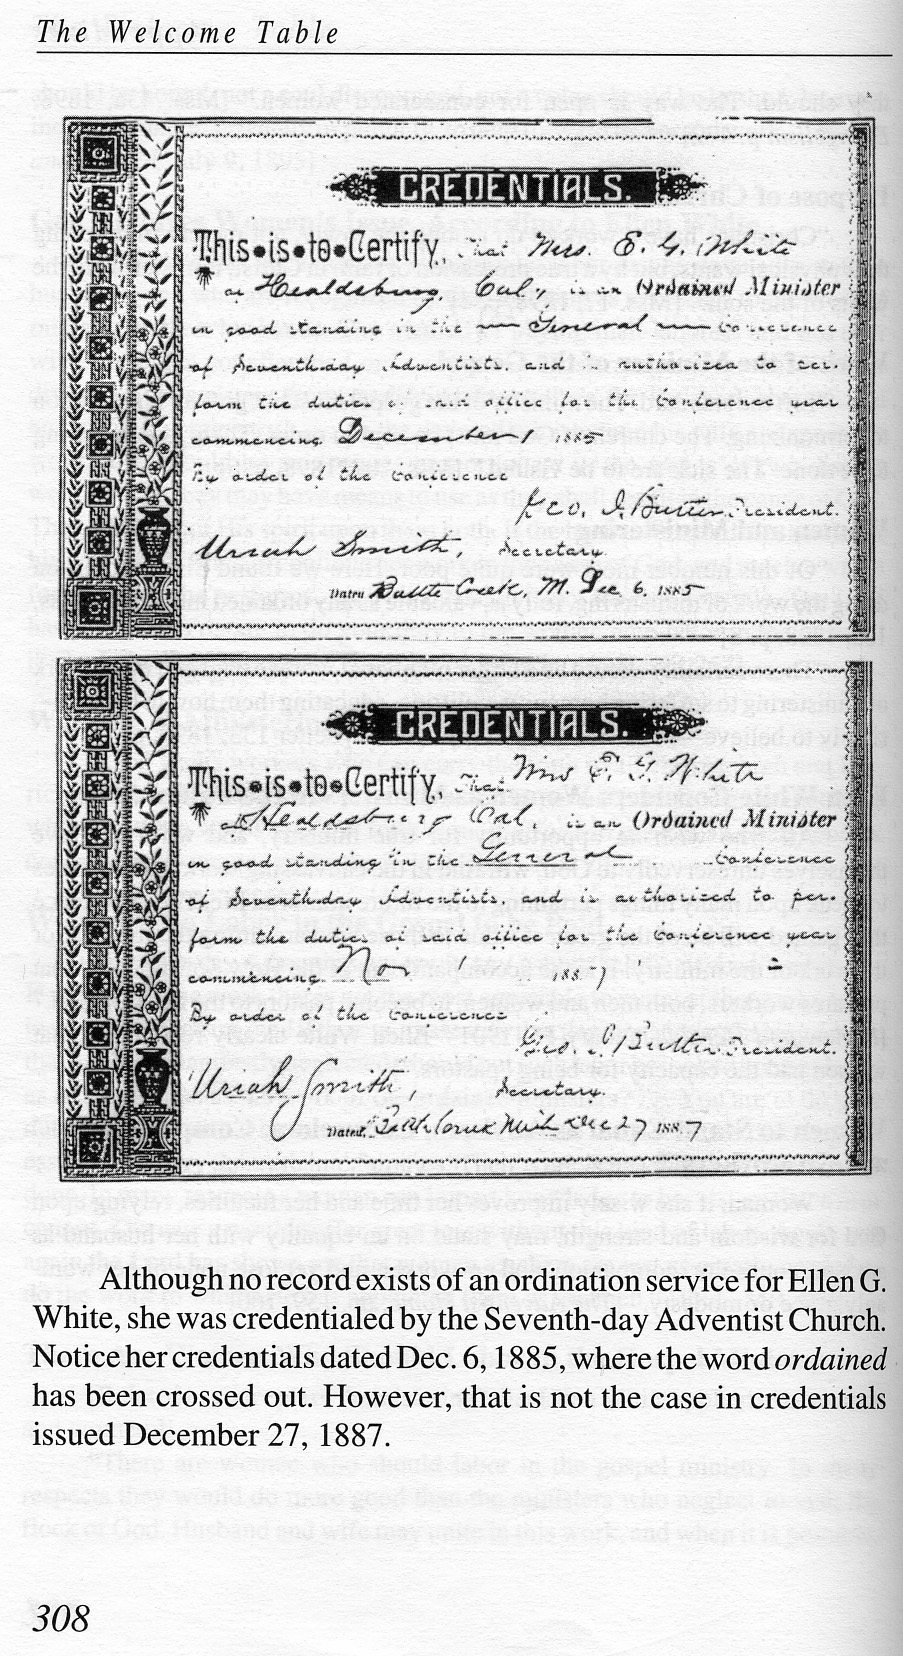 The Welcome Table
CREDENTIALS.
This is to Certify, That Mrs. E. G. White
of Healdsburg, Cal, is an Ordained Minister
in good standing in the — General — Conference
of Seventh-day Adventists, and is authorized to per-
form the duties of said office for the Conference year
commencing December 1 1885
By order of the Conference
Geo. I. Butler President.
Uriah Smith, Secretary
Dated Battle Creek, M. Dec. 6, 1885
CREDENTIALS.
This is to Certify, That Mrs E. G. White
of Healdsburg Cal. is an Ordained Minister
in good standing in the General Conference
of Seventh-day Adventists, and is authorized to per-
form the duties of said office for the Conference year
commencing Nov 1887
By order of the Conference
Geo. I. Butler President.
Uriah Smith, Secretary.
Dated, Battle Creek Mich Dec 27 1887
Although no record exists of an ordination service for Ellen G.
White, she was credentialed by the Seventh-day Adventist Church.
Notice her credentials dated Dec. 6, 1885, where the word ordained
has been crossed out. However, that is not the case in credentials
issued December 27, 1887.
308